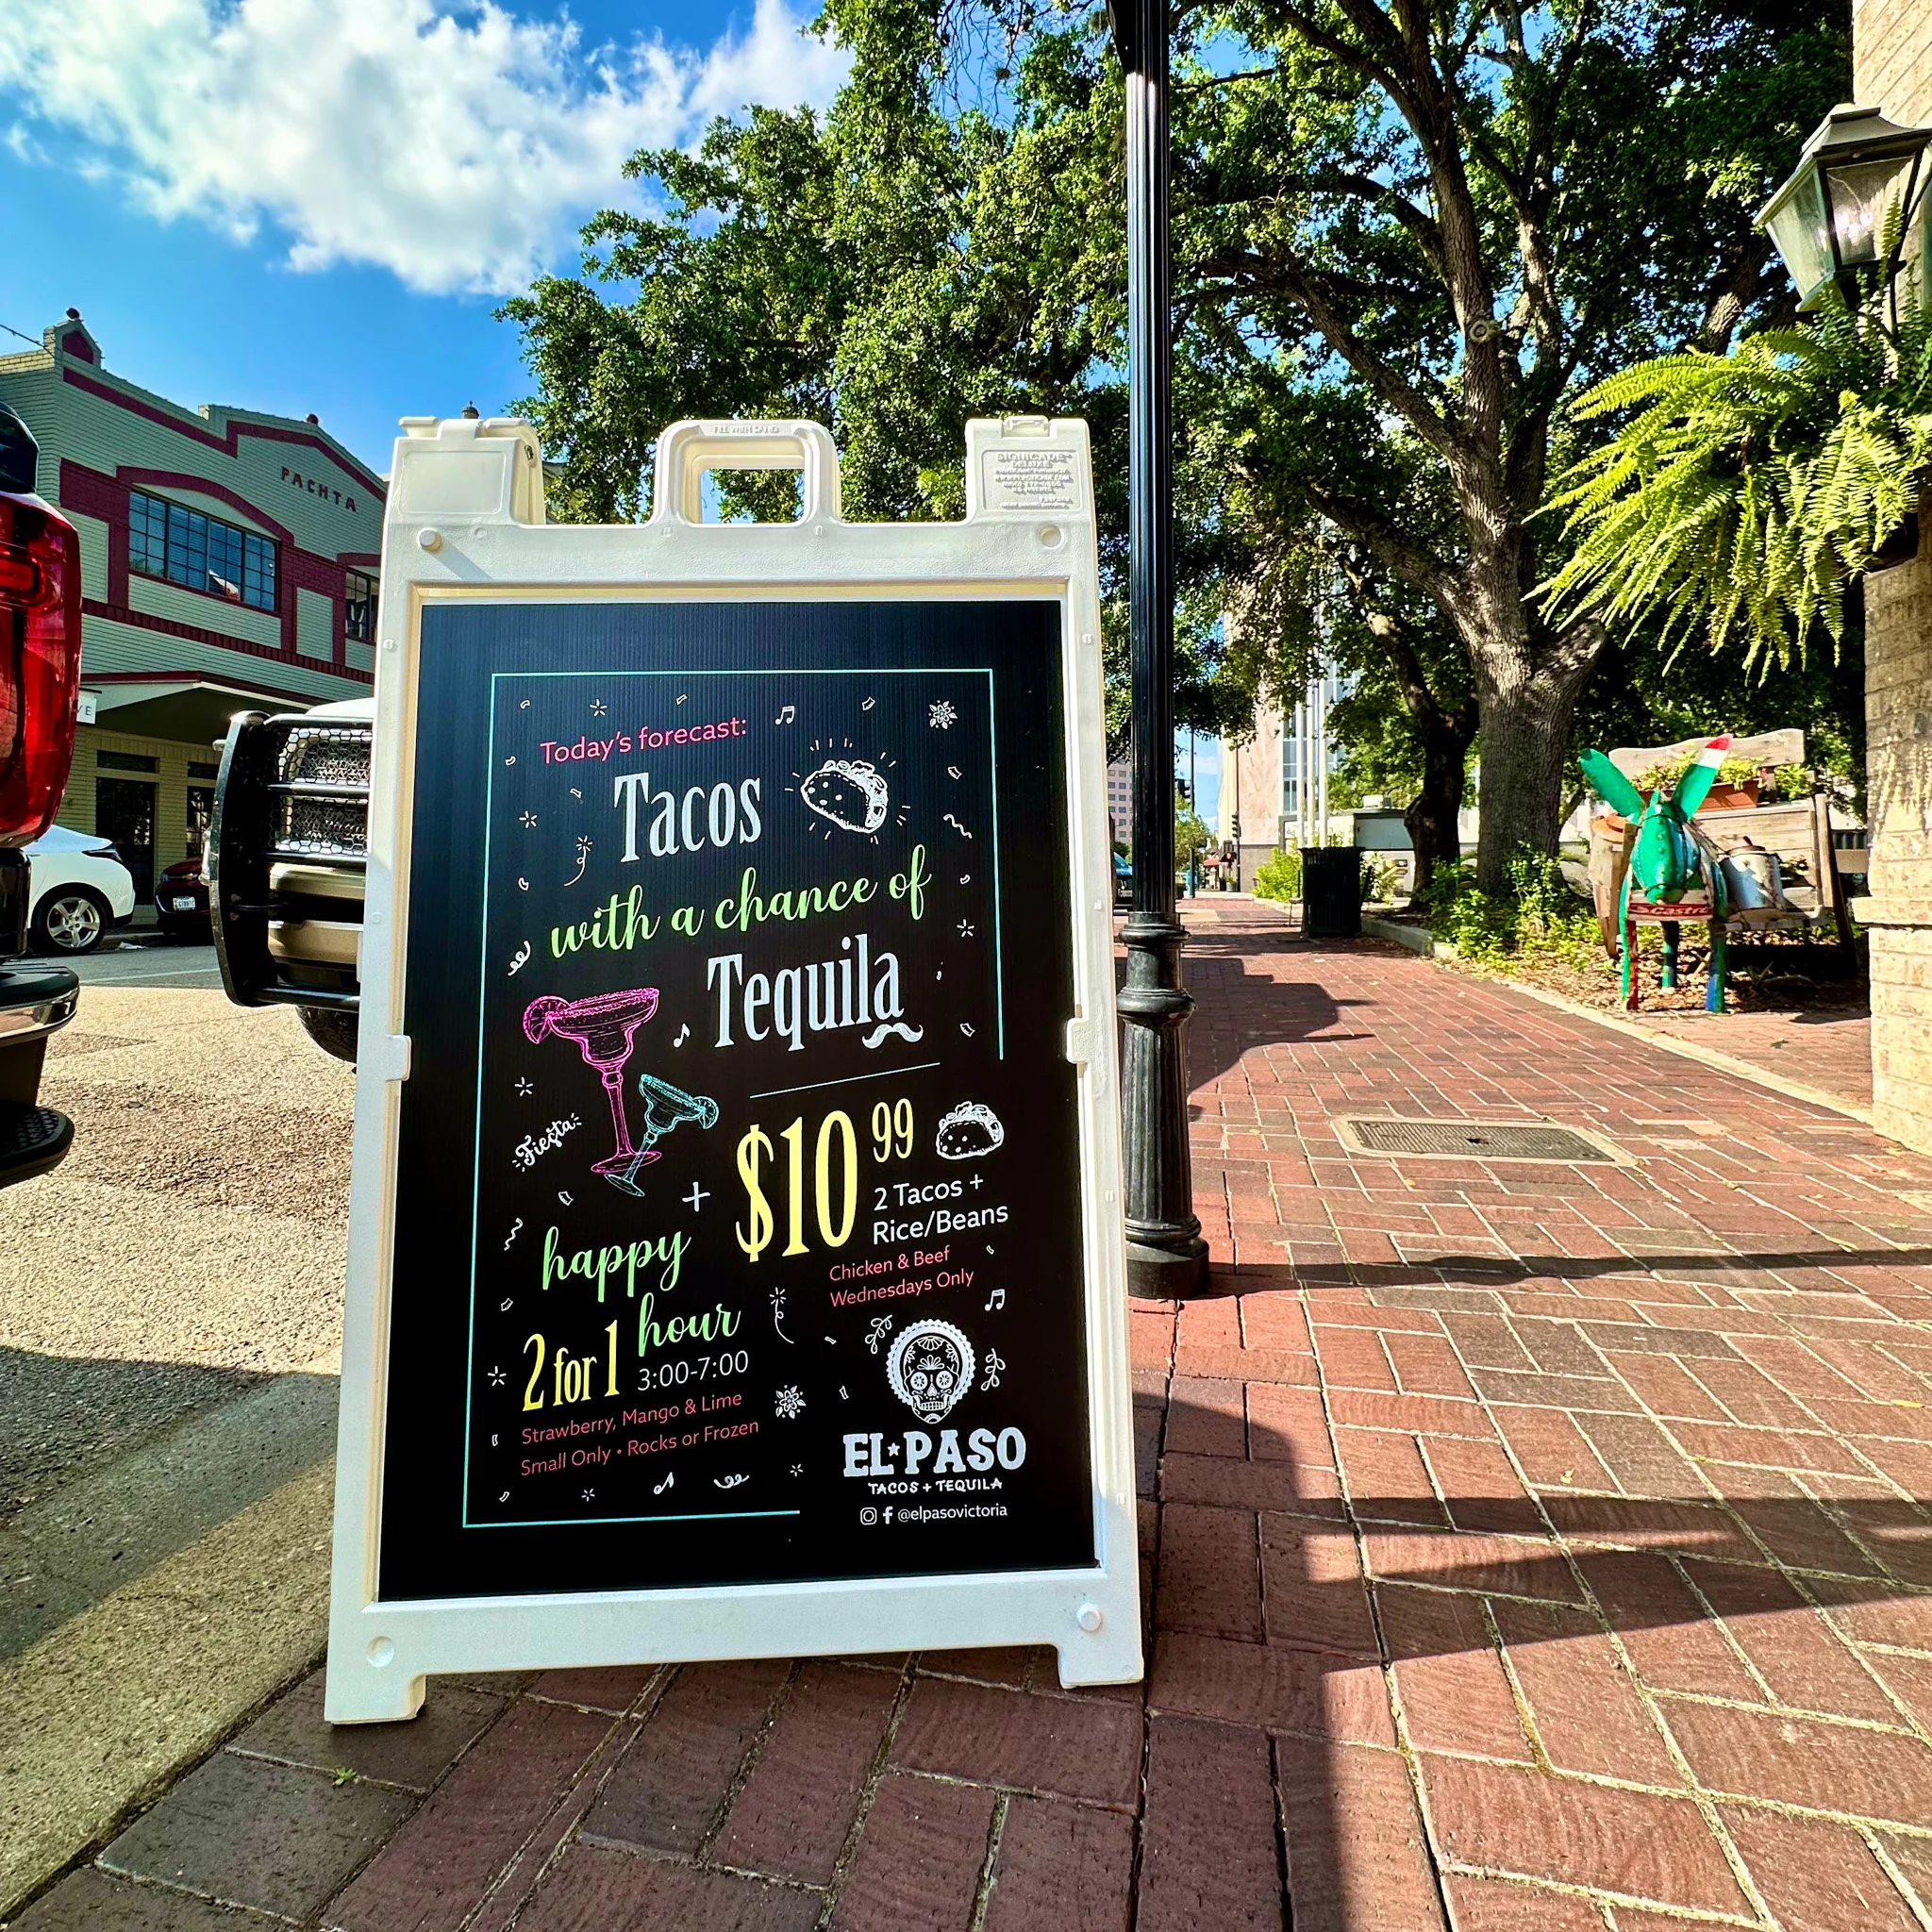 PACHTA
FILL WITH SAND
SIGNICADE
DELUXE
Today's forecast:
Tacos
with a chance of
Tequila
Fiesta
+
$10 99
2 Tacos +
Rice/Beans
Chicken & Beef
Wednesdays Only
happy
hour
2 for 1
3:00-7:00
Strawberry, Mango & Lime
Small Only • Rocks or Frozen
EL★PASO
TACOS + TEQUILA
@elpasovictoria